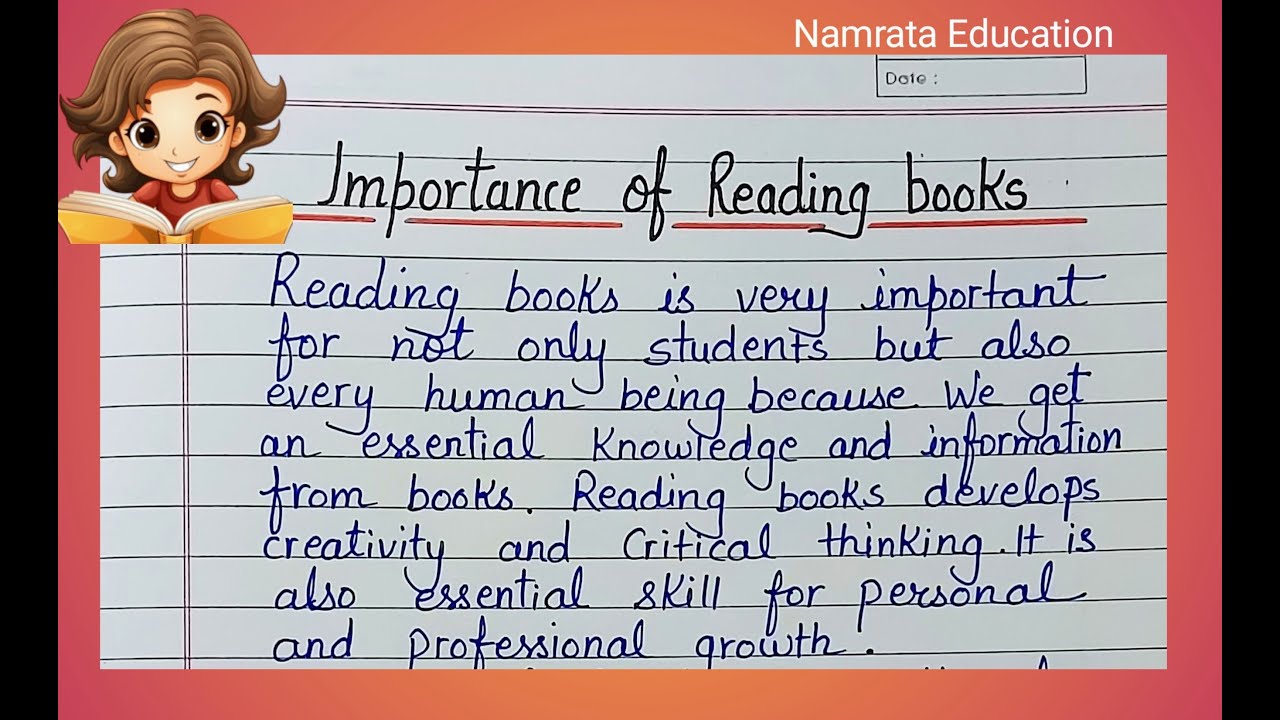 Namrata Education
Date :
Importance of Reading books
Reading books is very important
for not only students but also
every human being because We get
an essential Knowledge and information
from books. Reading books develops
creativity and Critical thinking. It is
also essential skill for personal
and professional growth.